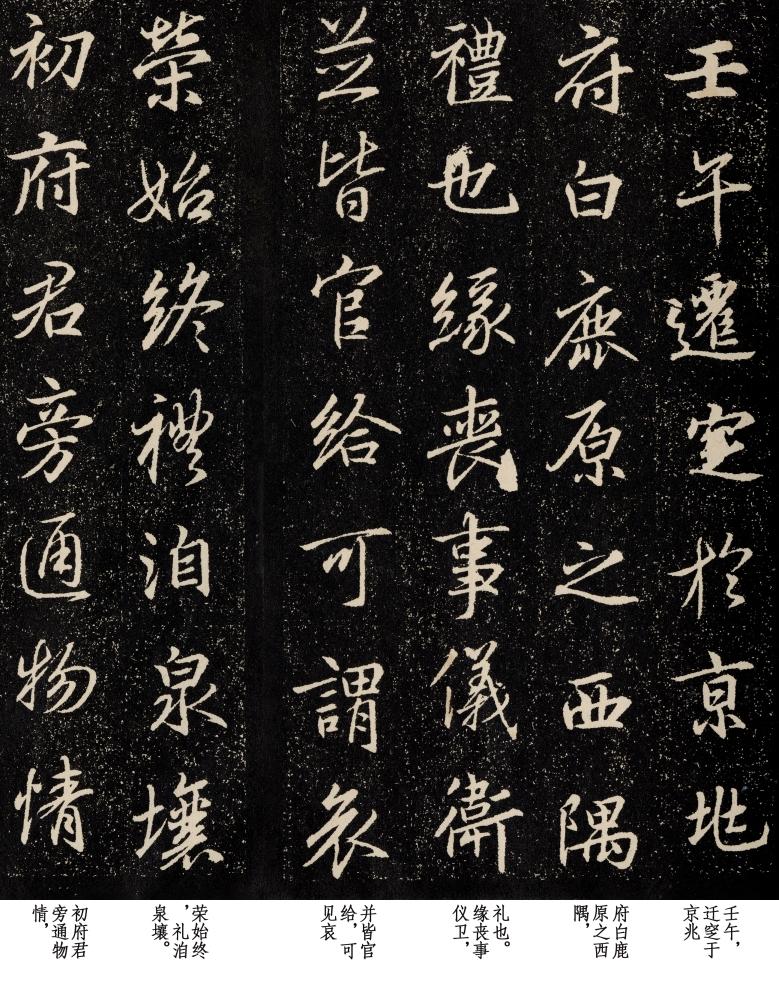 壬午遷窆於京兆
府白鹿原之西隅
禮也緣喪事儀衛
並皆官給可謂哀
榮始終禮洎泉壤
初府君旁通物情
壬午，
迁窆于
京兆
府白鹿
原之西
隅，
礼也。
缘丧事
仪卫，
并皆官
给，可
见哀
荣始终
，礼洎
泉壤。
初府君
旁通物
情，